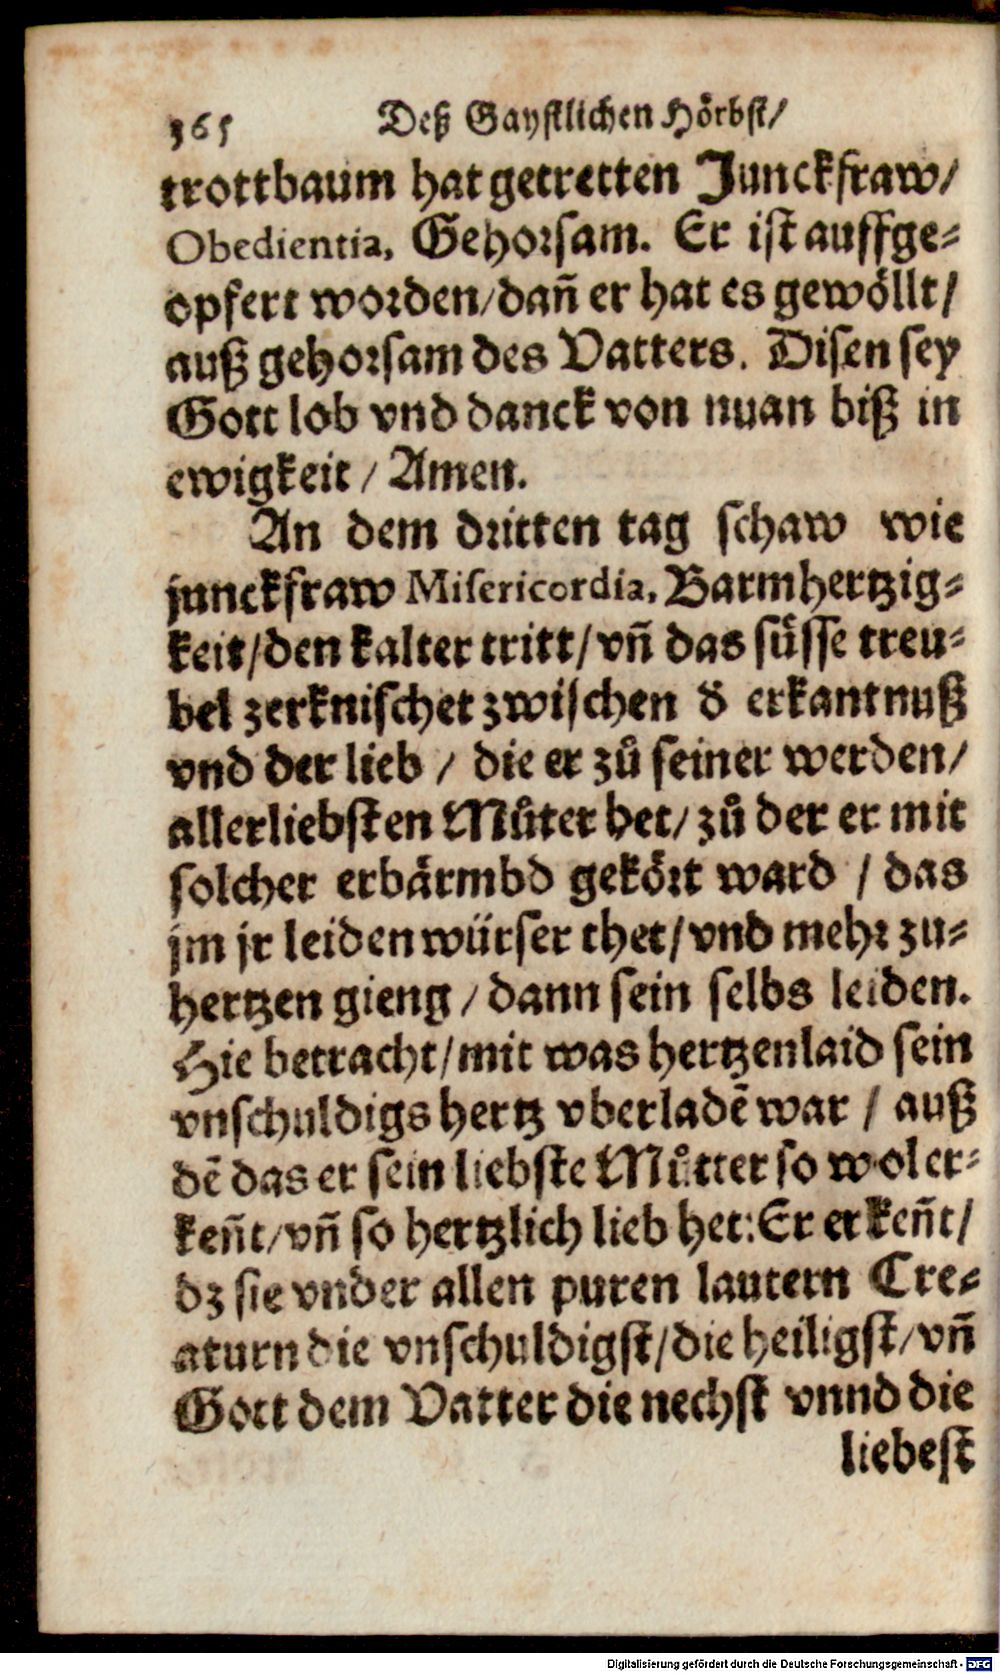 365 Deß Gaystlichen Hörbst/
trottbaum hat getretten Junckfraw/
Obedientia, Gehorsam. Er ist auffge-
opfert worden/dañ er hat es gewöllt/
auß gehorsam des Vatters. Disen sey
Gott lob vnd danck von nuan biß in
ewigkeit / Amen.
An dem dritten tag schaw wie
junckfraw Misericordia, Barmhertzig-
keit/den kalter tritt/vñ das süsse treu-
bel zerknischet zwischen d̕ erkantnuß
vnd der lieb / die er zů seiner werden/
allerliebsten Můter het/zů der er mit
solcher erbärmbd gekört ward / das
jm jr leiden würser thet/vnd mehr zu-
hertzen gieng / dann sein selbs leiden.
Hie betracht/mit was hertzenlaid sein
vnschuldigs hertz vberladẽ war / auß
dẽ das er sein liebste Můtter so wol er-
keñt/vñ so hertzlich lieb het:Er erkeñt/
dz sie vnder allen puren lautern Cre-
aturn die vnschuldigst/die heiligst/vñ
Gott dem Vatter die nechst vnnd die
liebest
Digitalisierung gefördert durch die Deutsche Forschungsgemeinschaft - DFG